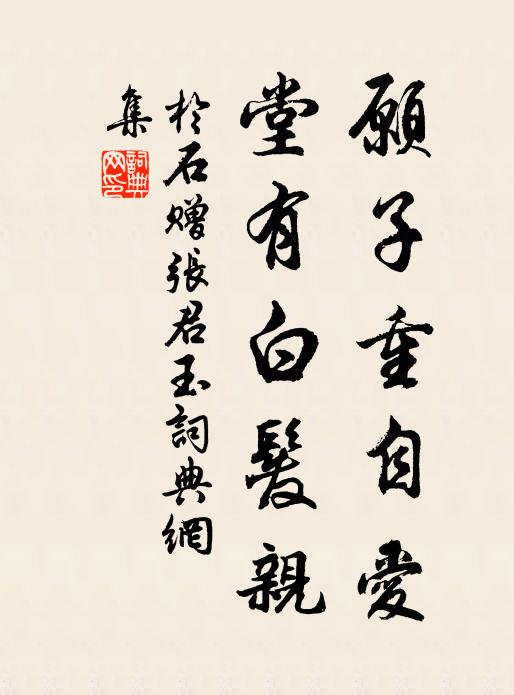 願子重自愛
堂有白髮親
於石贈張君玉詞典網
集
詞典
網印